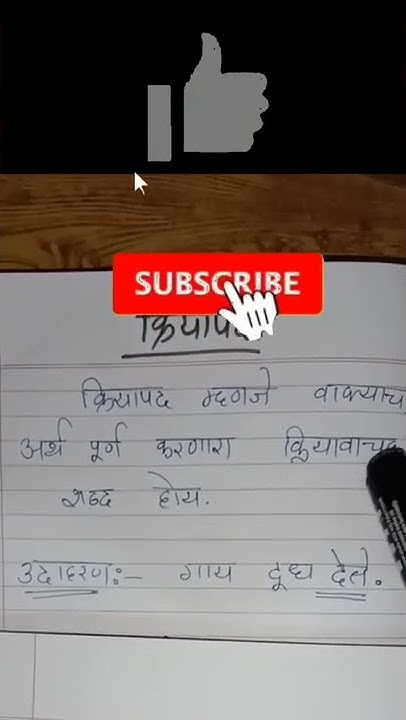 SUBSCRIBE
क्रियापद
क्रियापद म्हणजे वाक्याच
अर्थ पूर्ण करणारा क्रियावाचक
शब्द होय.
उदाहरण:- गाय दूध देते.